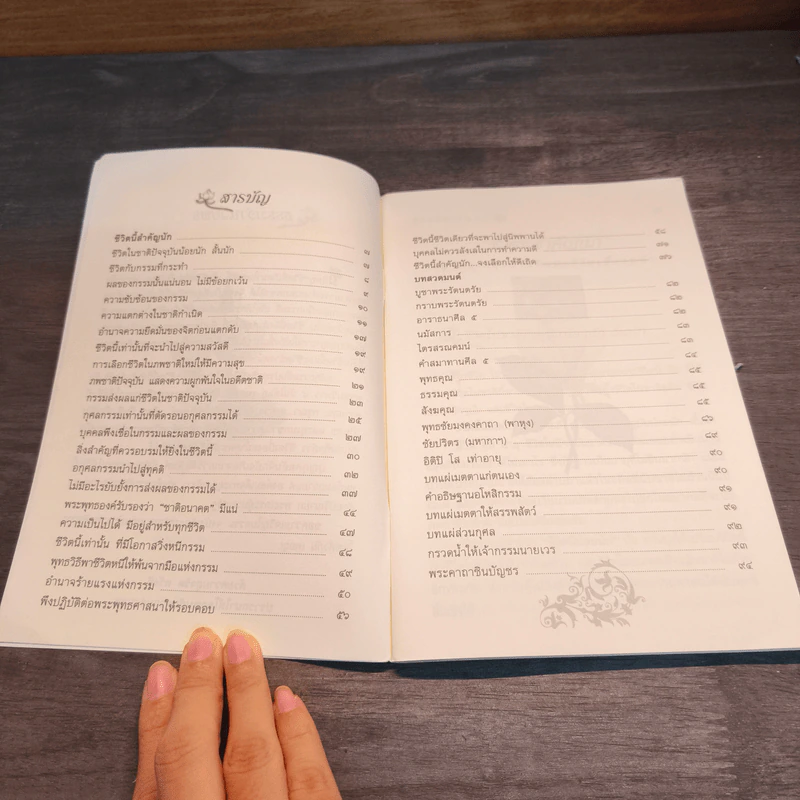 สารบัญ
ชีวิตนี้สำคัญนัก
ชีวิตในชาติปัจจุบันน้อยนัก สั้นนัก ๗
ชีวิตกับกรรมที่กระทำ ๗
ผลของกรรมนั้นแน่นอน ไม่มีข้อยกเว้น ๘
ความซับซ้อนของกรรม ๙
ความแตกต่างในชาติกำเนิด ๑๐
อำนาจความยึดมั่นของจิตก่อนแตกดับ ๑๑
ชีวิตนี้เท่านั้นที่จะนำไปสู่ความสวัสดี ๑๗
การเลือกชีวิตในภพชาติใหม่ให้มีความสุข ๑๙
ภพชาติปัจจุบัน แสดงความผูกพันในอดีตชาติ ๑๙
กรรมส่งผลแก่ชีวิตในชาติปัจจุบัน ๒๑
กุศลกรรมเท่านั้นที่ตัดรอนอกุศลกรรมได้ ๒๓
บุคคลพึงเชื่อในกรรมและผลของกรรม ๒๕
สิ่งสำคัญที่ควรอบรมให้ยิ่งในชีวิตนี้ ๒๗
อกุศลกรรมนำไปสู่ทุคติ ๓๐
ไม่มีอะไรยับยั้งการส่งผลของกรรมได้ ๓๒
พระพุทธองค์รับรองว่า "ชาติอนาคต" มีแน่ ๓๗
ความเป็นไปได้ มีอยู่สำหรับทุกชีวิต ๔๔
ชีวิตนี้เท่านั้น ที่มีโอกาสวิ่งหนีกรรม ๔๗
พุทธวิธีพาชีวิตหนีให้พ้นจากมือแห่งกรรม ๔๘
อำนาจร้ายแรงแห่งกรรม ๔๙
พึงปฏิบัติต่อพระพุทธศาสนาให้รอบคอบ ๕๐
๕๖
ชีวิตนี้ชีวิตเดียวที่จะพาไปสู่นิพพานได้ ๕๘
บุคคลไม่ควรลังเลในการทำความดี ๗๑
ชีวิตนี้สำคัญนัก...จงเลือกให้ดีเถิด ๗๖
บทสวดมนต์
บูชาพระรัตนตรัย ๘๒
กราบพระรัตนตรัย ๘๒
อาราธนาศีล ๕ ๘๒
นมัสการ ๘๓
ไตรสรณคมน์ ๘๓
คำสมาทานศีล ๕ ๘๔
พุทธคุณ ๘๕
ธรรมคุณ ๘๕
สังฆคุณ ๘๕
พุทธชัยมงคงคาถา (พาหุง) ๘๖
ชัยปริตร (มหากาฯ) ๘๙
อิติปิ โส เท่าอายุ ๙๐
บทแผ่เมตตาแก่ตนเอง ๙๐
คำอธิษฐานอโหสิกรรม ๙๑
บทแผ่เมตตาให้สรรพสัตว์ ๙๑
บทแผ่ส่วนกุศล ๙๒
กรวดน้ำให้เจ้ากรรมนายเวร ๙๓
พระคาถาชินบัญชร ๙๔